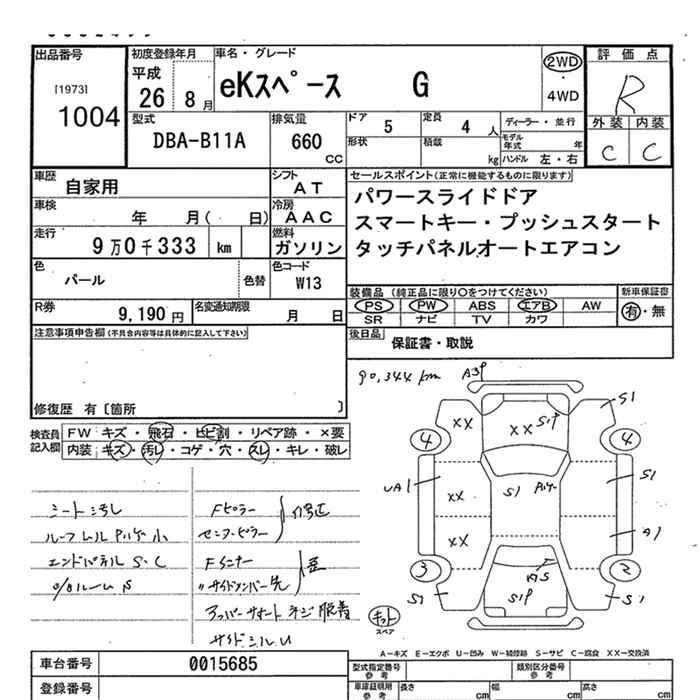 出品番号
[1973]
1004
初度登録年月
平成
26 8月
車名・グレード
eKスペース G
2WD
・
4WD
評価点
R
外装 内装
C C
型式
DBA-B11A
排気量
660
CC
ドア 5
定員 4 人
形状
積載 kg
ディーラー・並行
モデル年式 年
ハンドル 左・右
車歴 自家用
シフト
AT
車検 年 月( 日)
冷房
AAC
走行
9万0千333 km
燃料
ガソリン
セールスポイント(正常に機能するものに限ります)
パワースライドドア
スマートキー・プッシュスタート
タッチパネルオートエアコン
色
パール
色替
色コード
W13
R券
9,190円
名変通知期限
月 日
装備品 (純正品に限り○をつけてください)
PS PW ABS エアB AW
SR ナビ TV カワ
新車保証書
有・無
注意事項申告欄(不具合内容等は具体的に記入して下さい)
後日品
保証書・取説
修復歴 有[箇所 ]
90,344 km
検査員記入欄
FW キズ・飛石・ヒビ割・リペア跡・×要
内装 キズ・汚レ・コゲ・穴・スレ・キレ・破レ
シート汚レ
エンドパネル S・C
Fピラー
センターピラー
修正
Fインナー
〃サイドメンバー先
歪
アッパーサポートネジ脱着
サイドシル U
A3P
S1
XX
XX
S1P
4
4
UA1
XX
S1
S1
XX
A1
3
2
AS
S1P
S1
S1
キット
スペア
A-キズ E-エクボ U-凹み W-補修跡 S-サビ C-腐食 XX-交換済
車台番号
0015685
登録番号
型式指定番号
参考
類別区分番号
参考
車庫証明用
参考
長さ cm
幅 cm
高さ cm